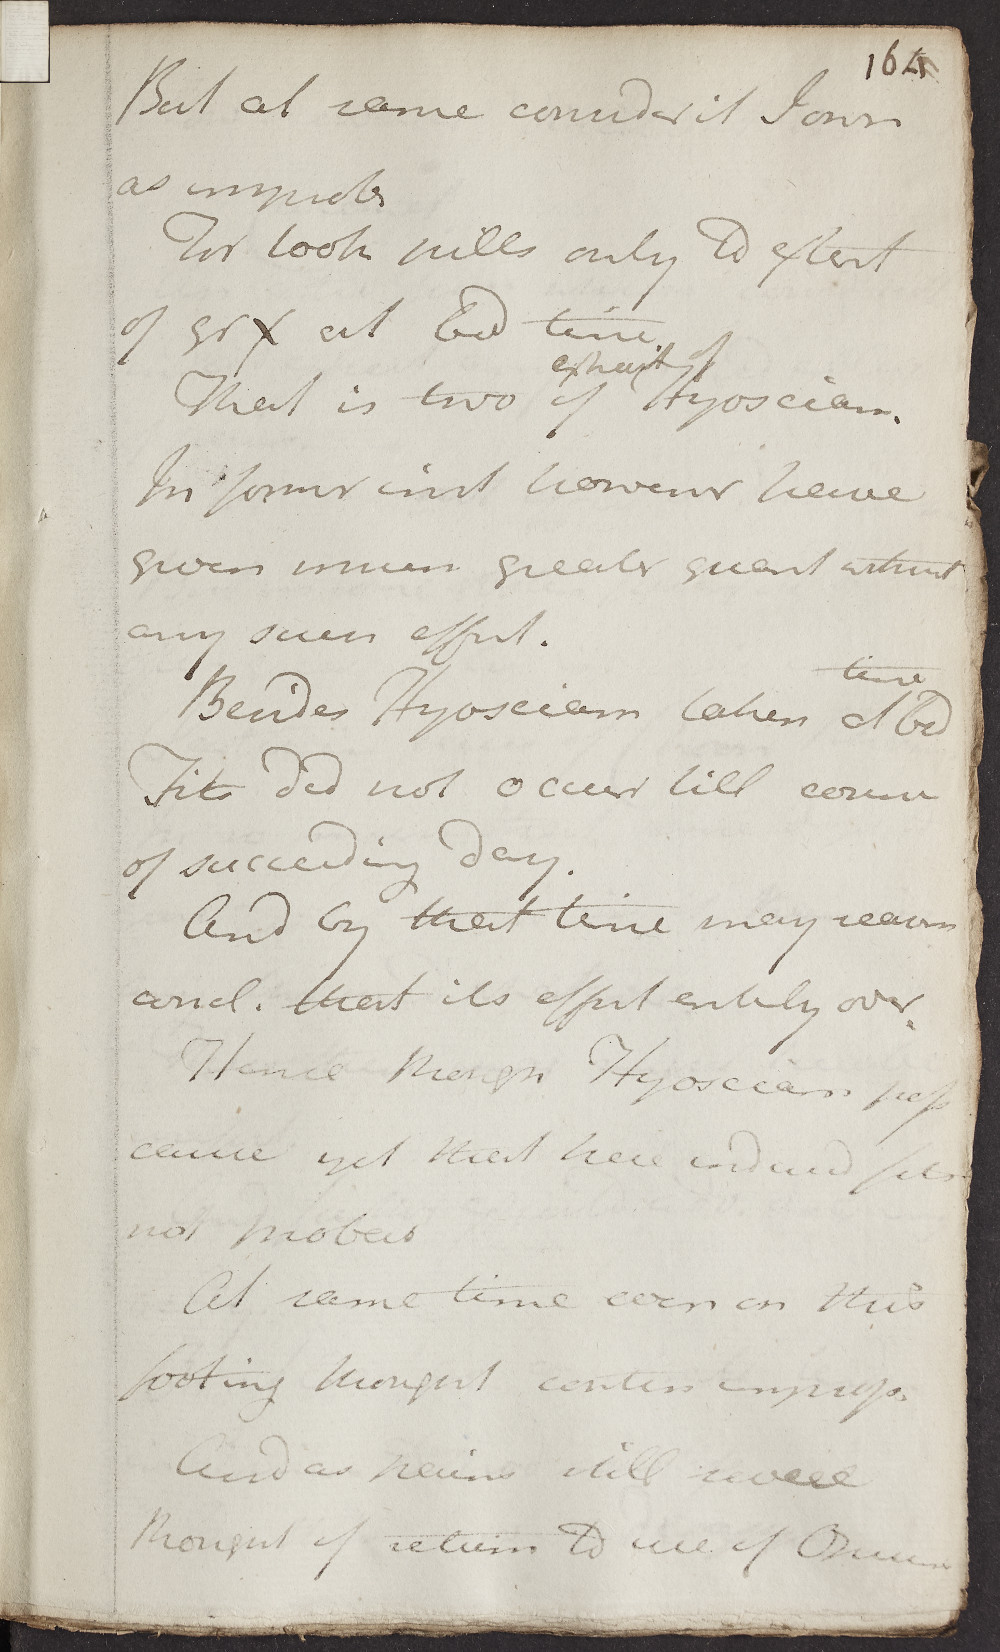 164
But at same consider it I own
as improb
For took pills only to extent
of grx at bed time.
That is two of extract of Hyosciam.
In former inst however have
given much greater quant without
any such effect.
Besides Hyosciam taken at bed time
Fits did not occur till course
of succeeding day.
And by that time may reason
concl. that its effect entirely over.
Hence though Hyosciam
cause yet that here induced fits
not probab
At same time even on this
footing thought contin improp.
And as pains still severe
thought of return to use of Opium